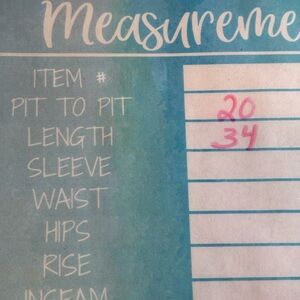 Measureme
ITEM #
PIT TO PIT 20
LENGTH 34
SLEEVE
WAIST
HIPS
RISE
INSEAM